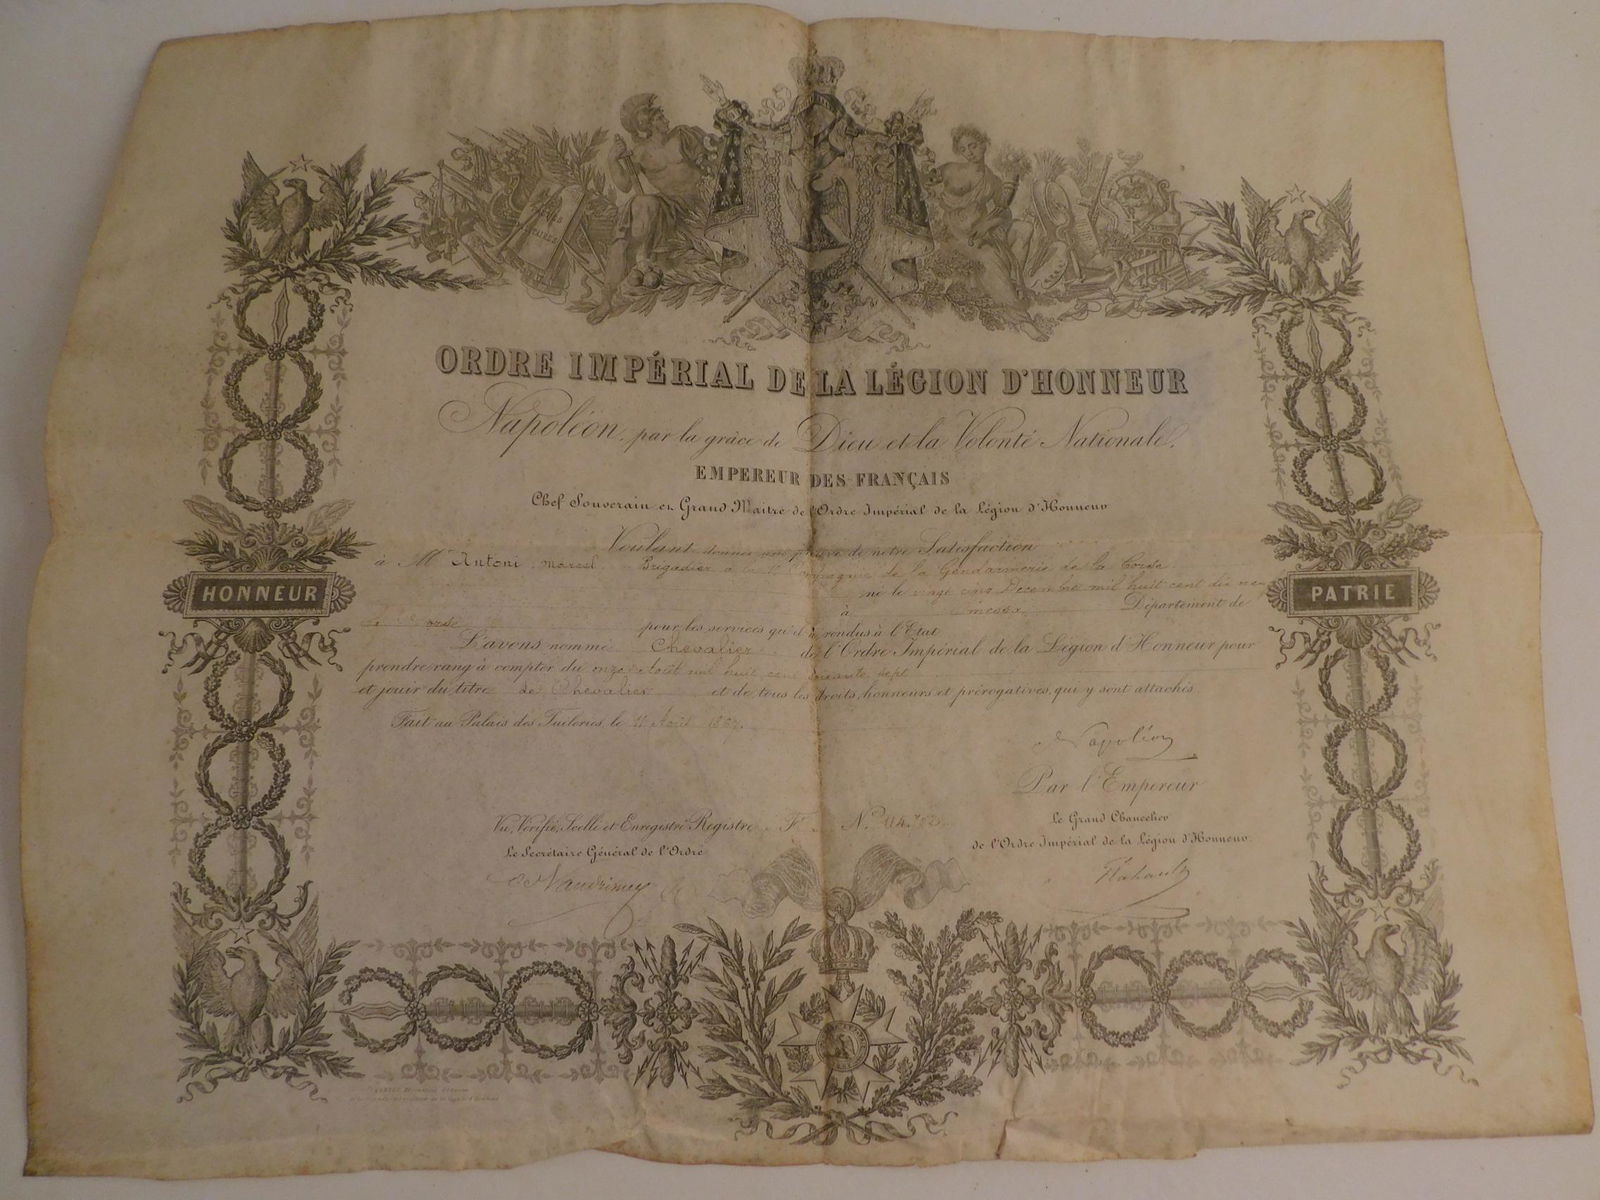 ORDRE IMPÉRIAL DE LA LÉGION D'HONNEUR
Napoléon, par la grâce de Dieu et la Volonté Nationale,
EMPEREUR DES FRANÇAIS
Chef Souverain et Grand Maître de l'Ordre Impérial de la Légion d'Honneur
Voulant donner une preuve de notre Satisfaction
à Mr Antoni, Marcel Brigadier à la Compagnie de la Gendarmerie de la Corse
né le vingt cinq Décembre mil huit cent dix neuf
à Département de
la Corse pour les services qu'il a rendus à l'État
L'avons nommé Chevalier de l'Ordre Impérial de la Légion d'Honneur pour
prendre rang à compter du onze Août mil huit cent soixante sept
et jouir du titre de Chevalier et de tous les droits, honneurs et prérogatives, qui y sont attachés.
Fait au Palais des Tuileries, le 11 Août 1867.
Napoléon
Par l'Empereur
Le Grand Chancelier
de l'Ordre Impérial de la Légion d'Honneur.
Flahault
Vu, Vérifié, Scellé et Enregistré Registre F No
Le Secrétaire Général de l'Ordre
HONNEUR
PATRIE